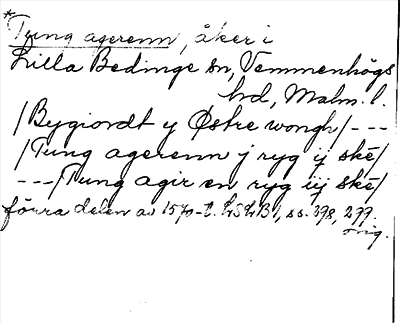 *
Tung agerenn, åker i
Lilla Bedinge sn, Vemmenhögs
hd, Malm. l.
/Bygiordt y Østre wongh/---
/Tung agerenn j ryg ij ské/
---/Tung agir en ryg iij ské/
förra delen av 1570-t. ss. 298, 299.
orig.